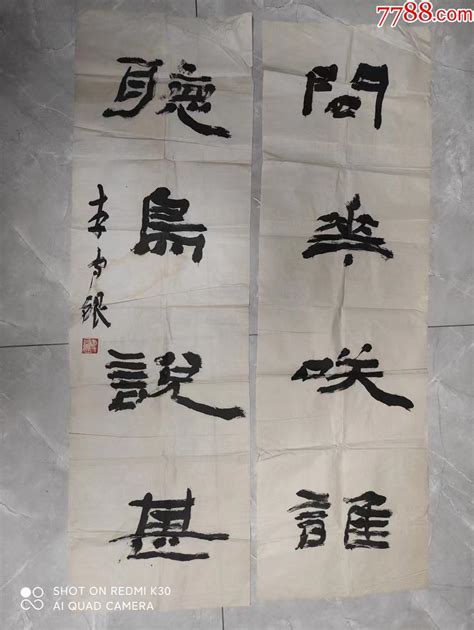 7788.com
問華咲誰
聽鳥說甚
李 银
SHOT ON REDMI K30
AI QUAD CAMERA